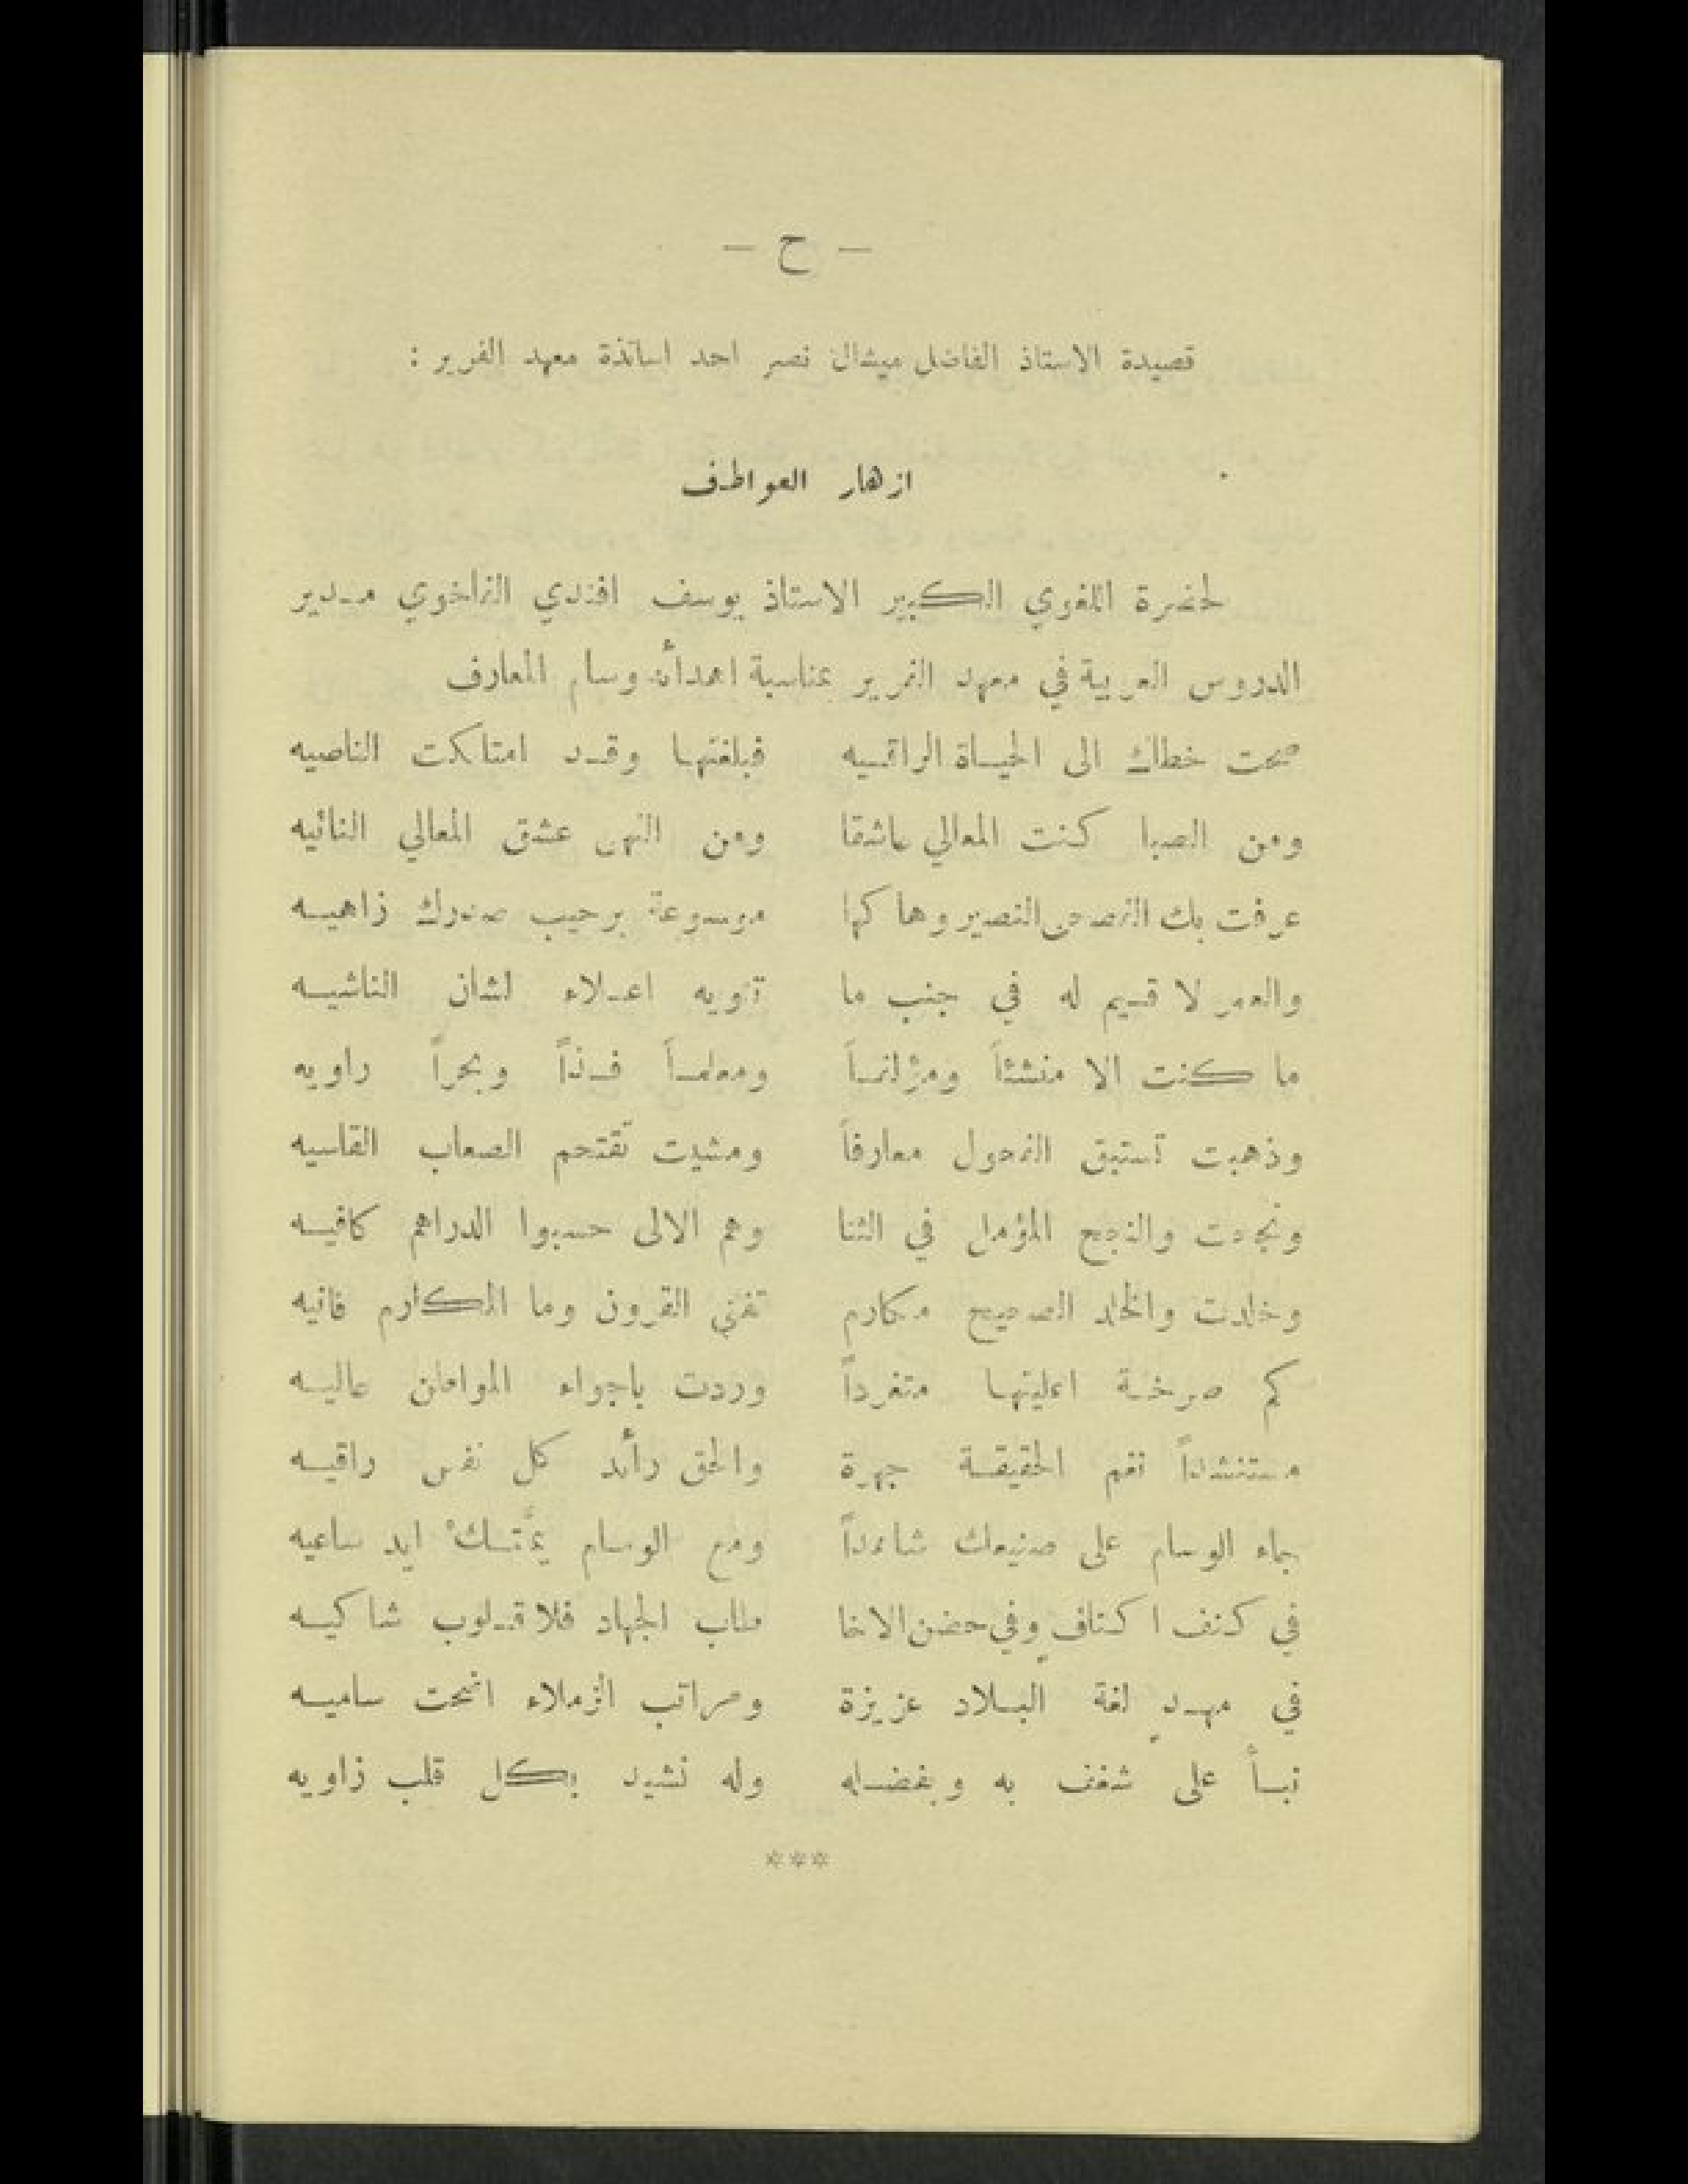 — ح —
قصيدة الاستاذ الفاضل ميشال نصر احد اساتذة معهد الفرير :
ازهار العواطف
لحضرة اللغوي الكبير الاستاذ يوسف افندي الفاخوري مدير
الدروس العربية في معهد الفرير بمناسبة اهدائه وسام المعارف
صحت خطاك الى الحياة الراقيه فبلغتها وقد امتلكت الناصيه
ومن الصبا كنت المعالي عاشقا ومن النهى عشق المعالي النائيه
عرفت بك الفصحى النصير وها كها موسوعة برحيب صدرك زاهيه
والعمر لا قيم له في جنب ما تنويه اعلاء لشان الناشيه
ما كنت الا منشئاً ومؤلفاً ومعلماً فذاً وبحراً راويه
وذهبت تستبق الفحول معارفاً ومشيت تقتحم الصعاب القاسيه
ونجحت والنجح المؤمل في الثنا وهم الالى حسبوا الدراهم كافيه
وخلدت والخلد الصحيح مكارم تفنى القرون وما المكارم فانيه
كم صرخة اعليتها متفرداً وردت باجواء المواطن عاليه
مستنشداً نغم الحقيقة جهرة والحق رائد كل نفس راقيه
جاء الوسام على صنيعك شاهداً ومع الوسام يمَّتكْ ايد ساعيه
في كنف اكناف وفي حضن الاخا طاب الجهاد فلا قلوب شاكيه
في مهدِ لغة البلاد عزيزة ومراتب الزملاء اضحت ساميه
نبأ على شغف به وبفضله وله نشيد بكل قلب زاويه
***